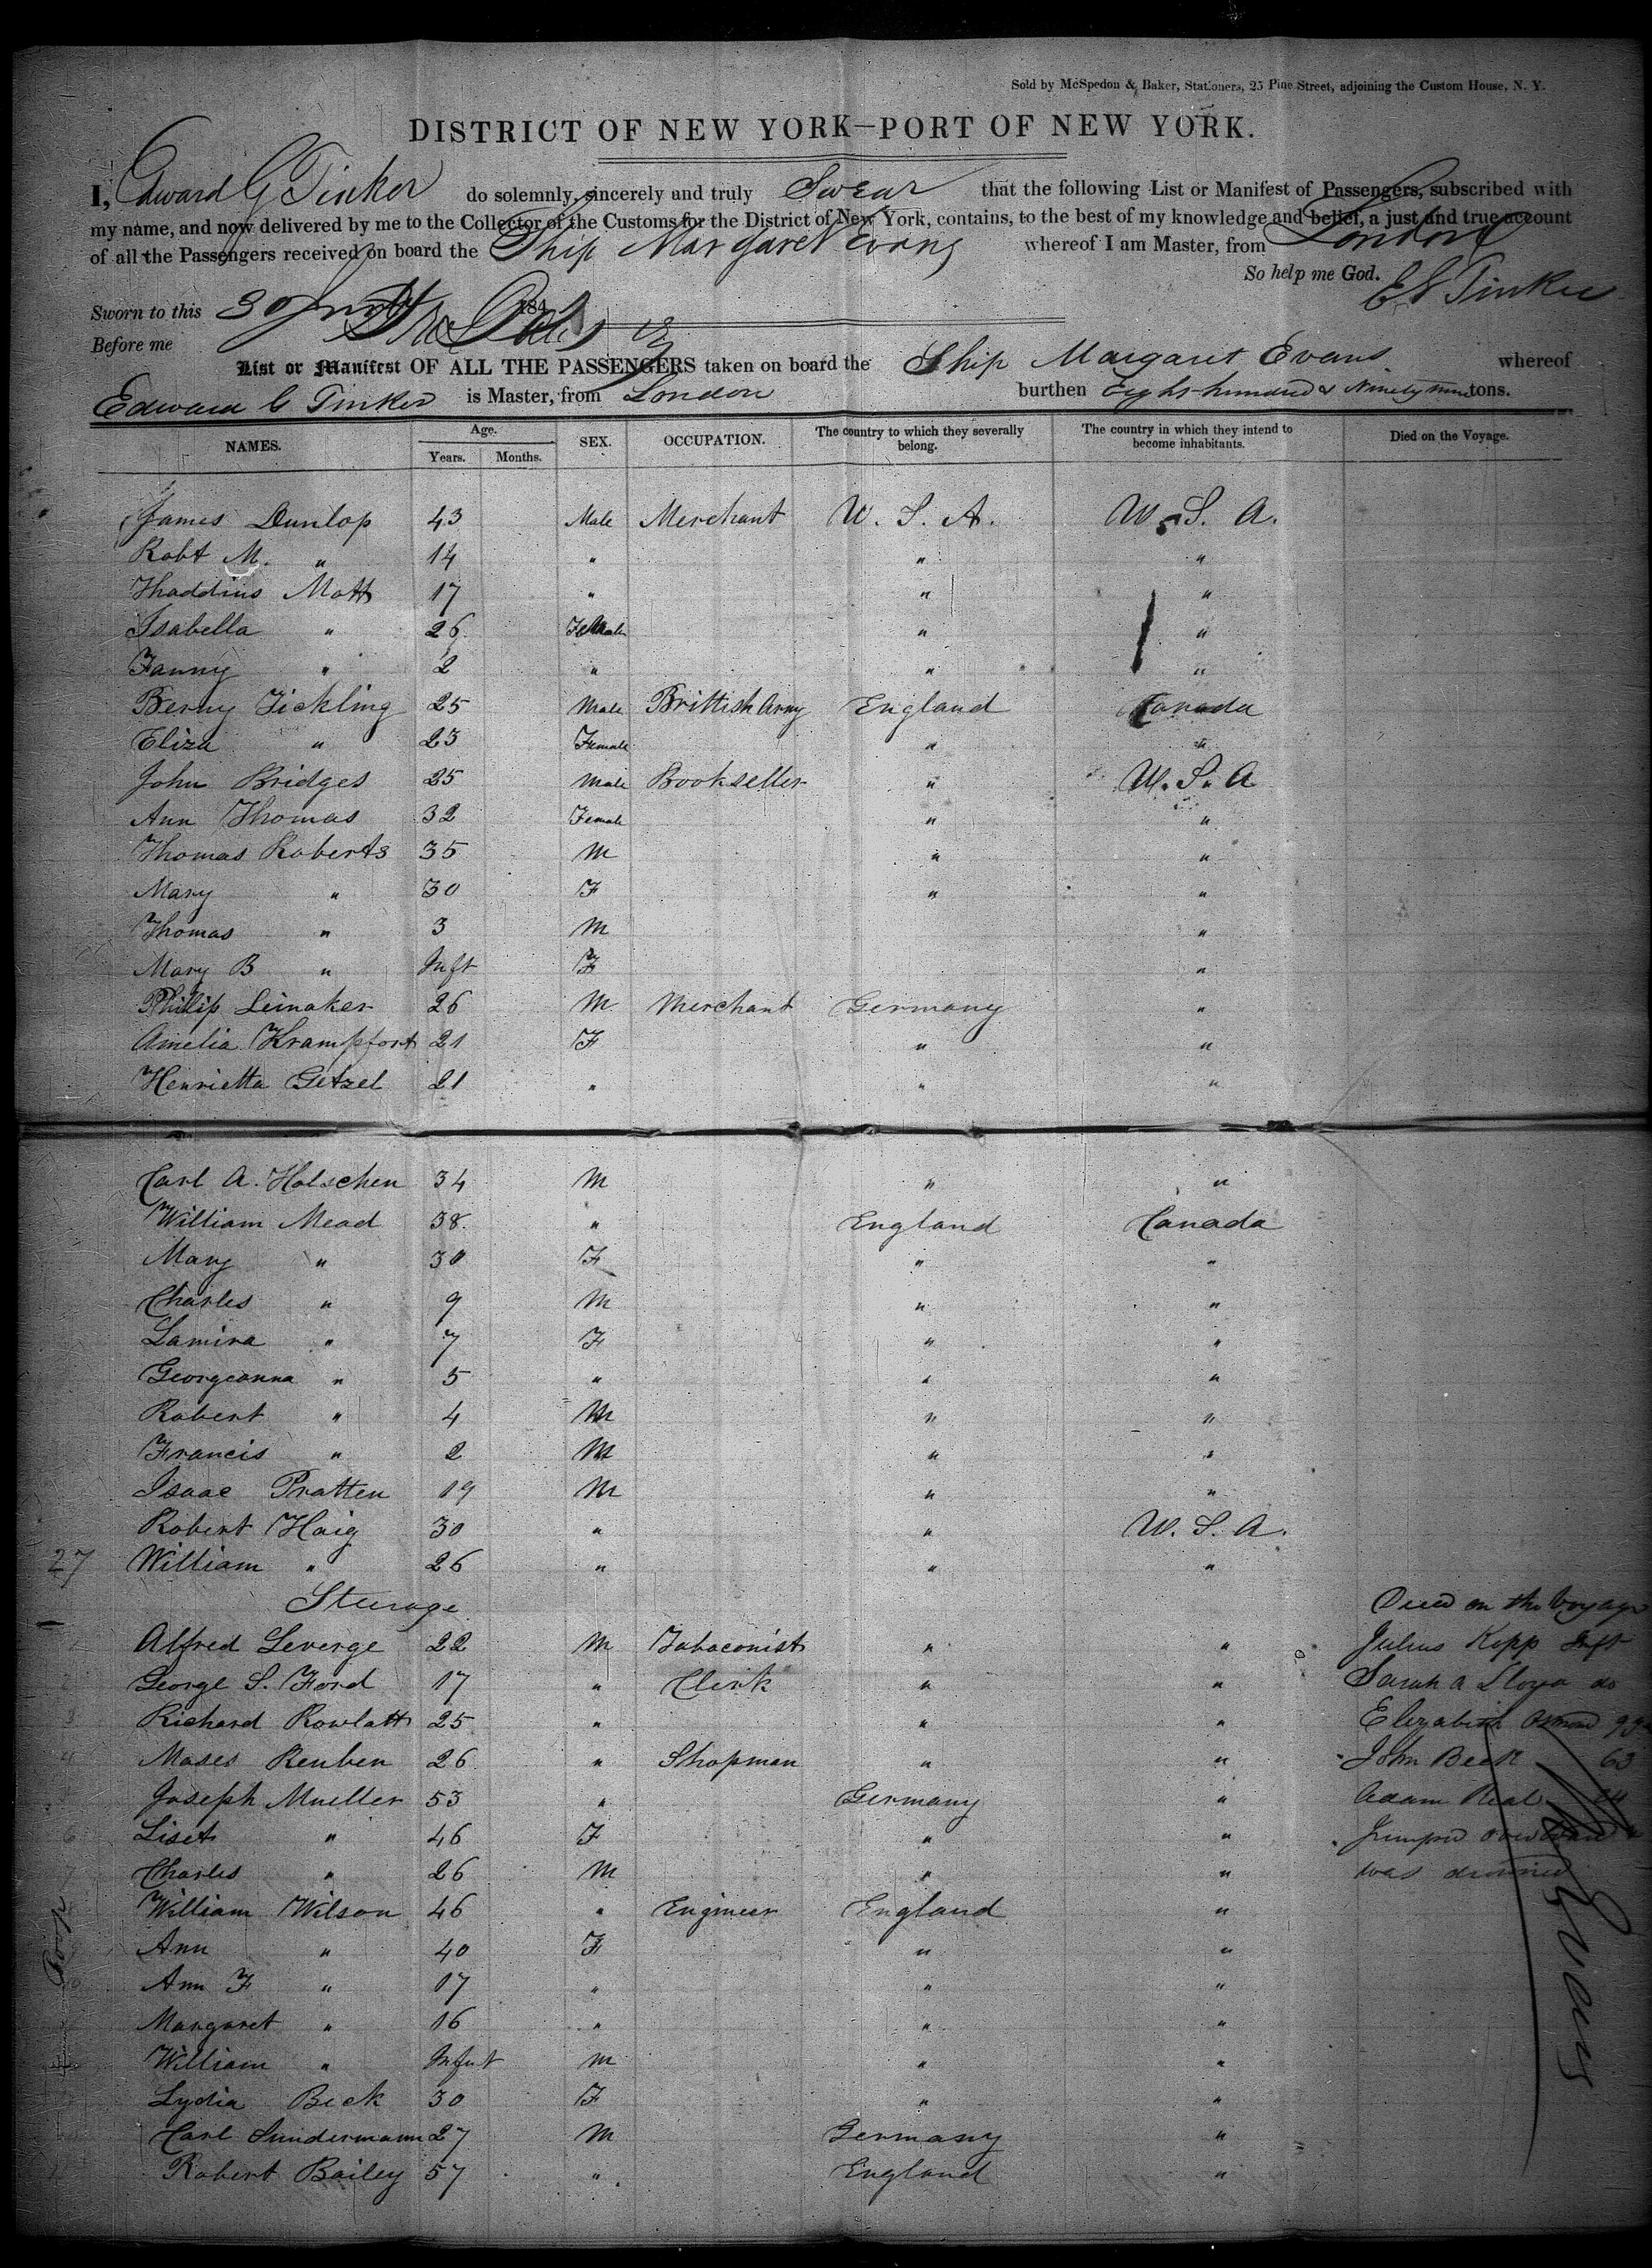 Sold by McSpedon & Baker, Stationers, 25 Pine Street, adjoining the Custom House, N. Y.
DISTRICT OF NEW YORK—PORT OF NEW YORK.
I, Edward G Tinker do solemnly, sincerely and truly Swear that the following List or Manifest of Passengers, subscribed with
my name, and now delivered by me to the Collector of the Customs for the District of New York, contains, to the best of my knowledge and belief, a just and true account
of all the Passengers received on board the Ship Margaret Evans whereof I am Master, from London
So help me God.
E G Tinker
Sworn to this 30 184
Before me
List or Manifest OF ALL THE PASSENGERS taken on board the Ship Margaret Evans whereof
Edward G Tinker is Master, from London burthen Eight hundred & Ninety nine tons.
NAMES. Age. Years. Months. SEX. OCCUPATION. The country to which they severally belong. The country in which they intend to become inhabitants. Died on the Voyage.
James Dunlop 43 Male Merchant U. S. A. U. S. A.
Robt M. " 14 " " "
Thaddius Mott 17 " " "
Isabella " 26 Female " "
Fanny " 2 " " "
Berny Tickling 25 Male Brittish Army England Canada
Eliza " 23 Female " "
John Bridges 25 Male Bookseller " U. S. A
Ann Thomas 32 Female " "
Thomas Roberts 35 M " "
Mary " 30 F " "
Thomas " 3 M "
Mary B " Inft F "
Phillip Leinaker 26 M Merchant Germany "
Amelia Krampfort 21 F " "
Henrietta Getzel 21 " " "
Carl A. Holschen 34 M " "
William Mead 38 " England Canada
Mary " 30 F " "
Charles " 9 M " "
Lamira " 7 F " "
Georgeanna " 5 " " "
Robert " 4 M " "
Francis " 2 M " "
Isaac Pratten 19 M " "
Robert Haig 30 " " U. S. A.
27 William " 26 " " "
Sturage Died on the Voyage
Alfred Leverge 22 M Tobaconist " " Julius Kopp Inft
George S. Ford 17 " Clerk " " Sarah A Lloyd do
3 Richard Rowlatt 25 " " " Elizabeth
4 Moses Reuben 26 " Shopman " " John Beck 63
Joseph Mueller 53 " Germany " Adam
6 Liset " 46 F " " Jumped overboard &
7 Charles " 26 M " " was drowned
William Wilson 46 " Engineer England "
Ann " 40 F " "
Ann F " 17 " " "
Margaret " 16 " " "
William " Infnt M " "
Lydia Beck 30 F " "
Carl Sundermann 27 M Germany "
Robert Bailey 57 " England "
M Evans